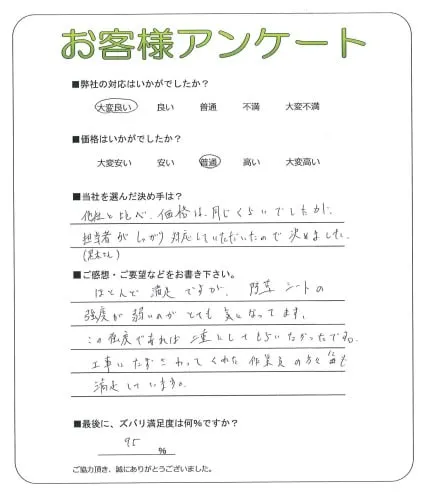 お客様アンケート
■弊社の対応はいかがでしたか？
大変良い 良い 普通 不満 大変不満
■価格はいかがでしたか？
大変安い 安い 普通 高い 大変高い
■当社を選んだ決め手は？
他社と比べ、価格は、同じくらいでしたが、
担当者がしっかり対応していただいたので決めました。
■ご感想・ご要望などをお書き下さい。
ほとんど満足ですが、防草シートの
強度が弱いのがとても気になってます。
この強度であれば二重としてもらいたかったです。
工事にたずさわってくれた作業員の方々
満足しています。
■最後に、ズバリ満足度は何％ですか？
95 ％
ご協力頂き、誠にありがとうございました。